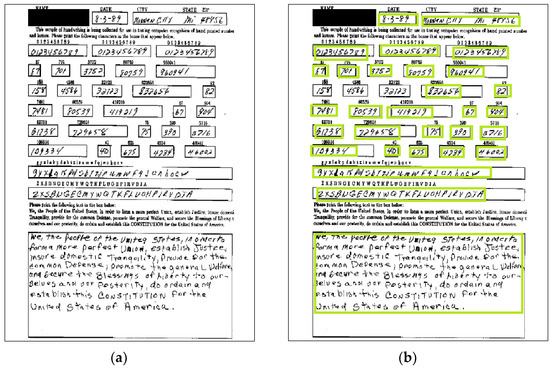 DATE CITY STATE ZIP
8-3-89 MI 48956
This sample of handwriting is being collected for use in testing computer recognition of hand printed numbers
and letters. Please print the following characters in the boxes that appear below.
0123456789 0123456789 0123456789
0123456789 0123456789 0123456789
87 701 3752 80759 960941
87 701 3752 80759 960941
158 4586 32123 832656 82
158 4586 32123 832656 82
7481 80539 419219 67 904
7481 80539 419219 67 904
61738 729658 75 390 5716
61738 729658 75 390 5716
109334 40 675
109334 40 675 46002
ZXSBUGECMYWQTKFLUOHPIRVDJA
Please print the following text in the box below:
We, the People of the United States, in order to form a more perfect Union, establish Justice, insure domestic
Tranquility, provide for the common Defense, promote the general Welfare, and secure the Blessings of Liberty to
ourselves and our posterity, do ordain and establish this CONSTITUTION for the United States of America.
We, the People of the United States, in order to
form a more perfect Union, establish Justice,
insure domestic Tranquility, provide for the
common Defense, promote the general Welfare,
and secure the Blessings of Liberty to our-
selves and our posterity, do ordain and
establish this CONSTITUTION for the
United States of America.
(a)
DATE CITY STATE ZIP
8-3-89 MI 48956
This sample of handwriting is being collected for use in testing computer recognition of hand printed numbers
and letters. Please print the following characters in the boxes that appear below.
0123456789 0123456789 0123456789
0123456789 0123456789 0123456789
87 701 3752 80759 960941
87 701 3752 80759 960941
158 4586 32123 832656 82
158 4586 32123 832656 82
7481 80539 419219 67 904
7481 80539 419219 67 904
61738 729658 75 390 5716
61738 729658 75 390 5716
109334 40 675
109334 40 675 46002
ZXSBUGECMYWQTKFLUOHPIRVDJA
Please print the following text in the box below:
We, the People of the United States, in order to form a more perfect Union, establish Justice, insure domestic
Tranquility, provide for the common Defense, promote the general Welfare, and secure the Blessings of Liberty to
ourselves and our posterity, do ordain and establish this CONSTITUTION for the United States of America.
We, the People of the United States, in order to
form a more perfect Union, establish Justice,
insure domestic Tranquility, provide for the
common Defense, promote the general Welfare,
and secure the Blessings of Liberty to our-
selves and our posterity, do ordain and
establish this CONSTITUTION for the
United States of America.
(b)